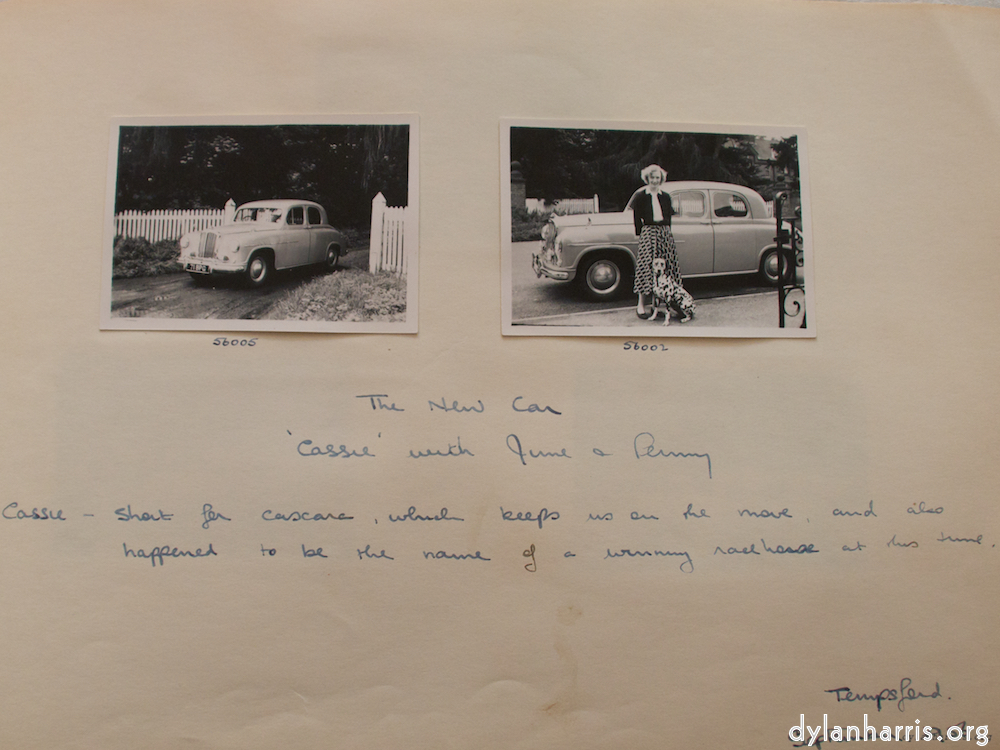 56005
56002
The New Car
'Cassie' with June & Penny
Cassie - Short for cascara, which keeps us on the move, and also
happened to be the name of a winning racehorse at this time.
Tempsford.
dylanharris.org